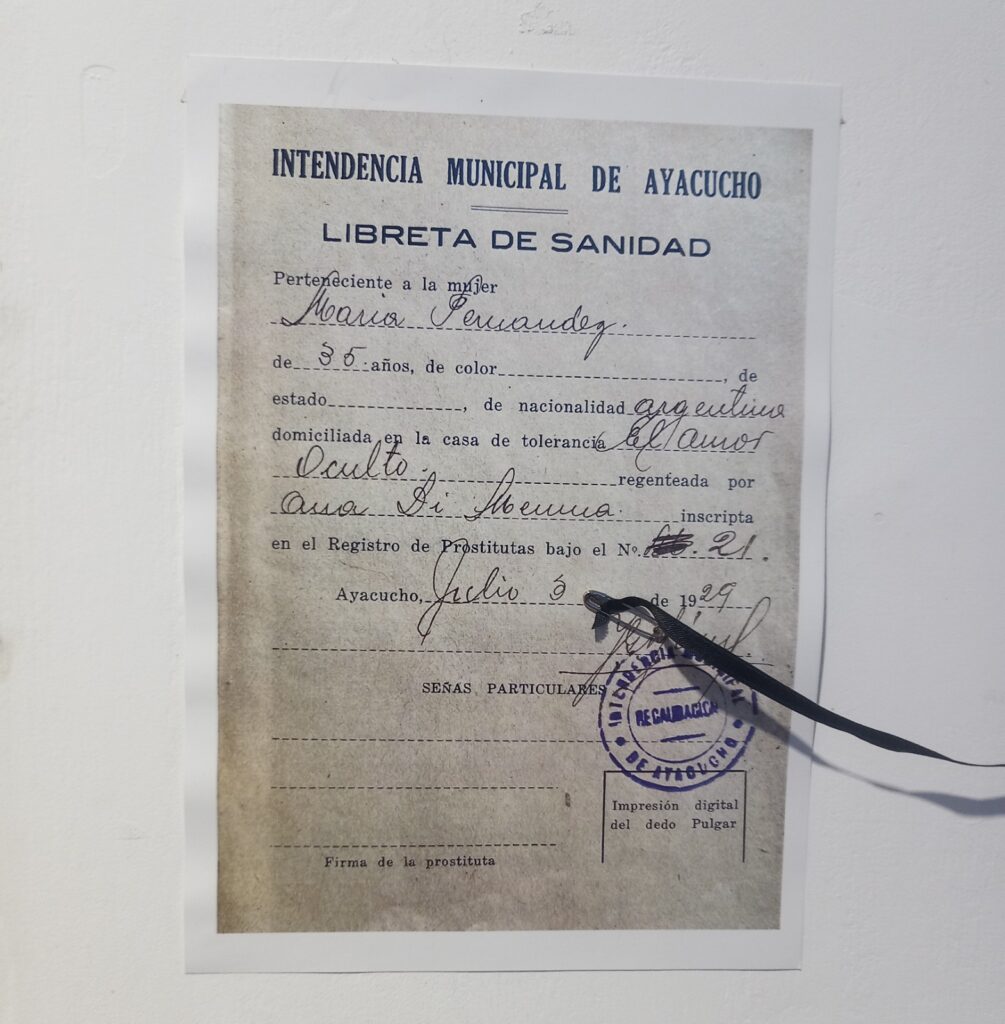 INTENDENCIA MUNICIPAL DE AYACUCHO
LIBRETA DE SANIDAD
Perteneciente a la mujer
Maria Fernandez.
de 35 años, de color , de
estado , de nacionalidad argentina
domiciliada en la casa de tolerancia El amor
Oculto. regenteada por
Ana Di Menna. inscripta
en el Registro de Prostitutas bajo el Nº. 21.
Ayacucho, Julio 3 de 1929
SEÑAS PARTICULARES
INTENDENCIA MUNICIPAL
RECAUDACION
DE AYACUCHO
Impresión digital
del dedo Pulgar
Firma de la prostituta